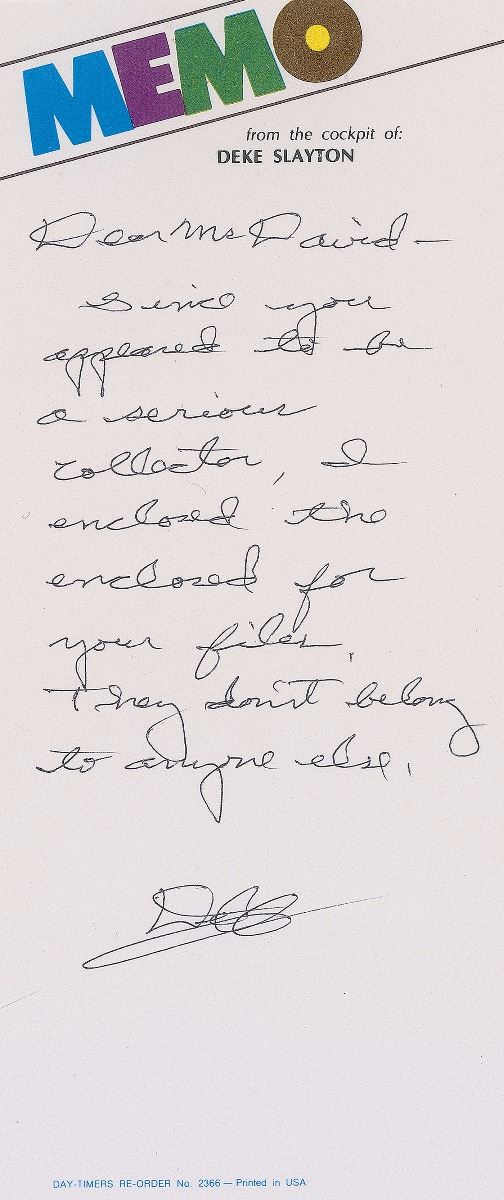 MEMO
from the cockpit of:
DEKE SLAYTON
Dear Ms David —
Since you
appeared to be
a serious
collector, I
enclosed the
enclosed for
your files.
They don't belong
to anyone else.
DAY-TIMERS RE-ORDER No. 2366 — Printed in USA